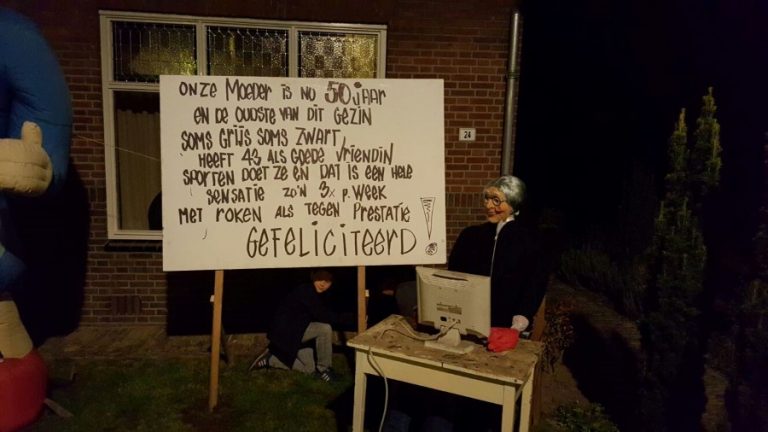 ONZE MOEDER IS NU 50 JAAR
EN DE OUDSTE VAN DIT GEZIN
SOMS GRIJS SOMS ZWART
HEEFT 43 ALS GOEDE VRIENDIN
SPORTEN DOET ZE EN DAT IS EEN HELE
SENSATIE ZO'N 3x p. WEEK
MET ROKEN ALS TEGEN PRESTATIE!
GEFELICITEERD
24